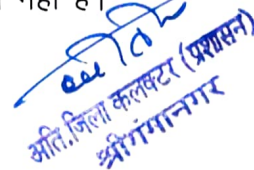 नहीं है।
अति.जिला कलक्टर (प्रशासन)
श्रीगंगानगर